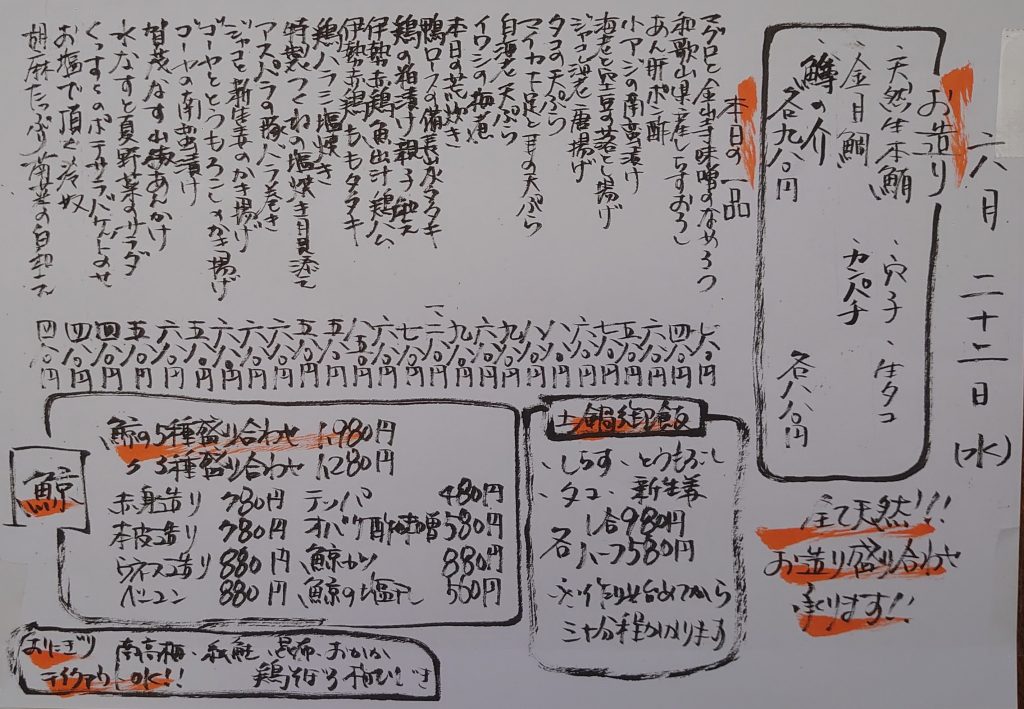 六月二十二日(水)
お造り
、天然生本鮪 、穴子 、生タコ
、金目鯛 、カンパチ
各八八〇円
、鱒の介
各九八〇円
全て天然!!!
お造り盛り合わせ
承ります!!
本日の一品
マグロと金山寺味噌のなめろう 七八〇円
和歌山県産しらすおろし 四八〇円
あん肝ポン酢 六八〇円
小アジの南蛮漬け 五八〇円
海老と空豆の落とし揚げ 七八〇円
ジャコし沼えび唐揚げ 六八〇円
タコの天ぷら 八八〇円
マイカ下足と耳の天ぷら
白海老天ぷら 九八〇円
イワシの梅煮 六八〇円
本日の荒炊き 九八〇円
鴨ロースの備長炭タタキ 一、二八〇円
鶏の粕漬け親子和え 七八〇円
伊勢赤鶏魚出汁鶏ハム
伊勢赤鶏ももタタキ 八八〇円
鶏ハラミ塩焼き 五八〇円
特製つくねの塩焼き月見添え 五八〇円
アスパラの豚バラ巻き 六八〇円
ジャコと新生姜のかき揚げ 六八〇円
ゴーヤととうもろこしかき揚げ 六八〇円
ゴーヤの南蛮漬け 五八〇円
賀茂なす山椒あんかけ 六八〇円
水なすと夏野菜のサラダ 五八〇円
くっすとのポテサラバゲットのせ 四八〇円
お塩で頂く冷奴 四八〇円
胡麻たっぷり青菜の白和え 四八〇円
土鍋御飯
、しらす 、とうもろこし
、タコ 、新生姜
各 一合980円
ハーフ580円
※作り始めてから
三十分程かかります
鯨
鯨の5種盛り合わせ 1,980円
〃 3種盛り合わせ 1,280円
赤身造り 780円 テッパ 480円
本皮造り 780円 オバケ酢味噌 580円
ウネス造り 880円 鯨カツ 880円
ベーコン 880円 鯨の塩干し 550円
おにぎり
テイクアウトOK!!
南高梅、紅鮭、昆布、おかか
鶏そぼろ 梅ひじき